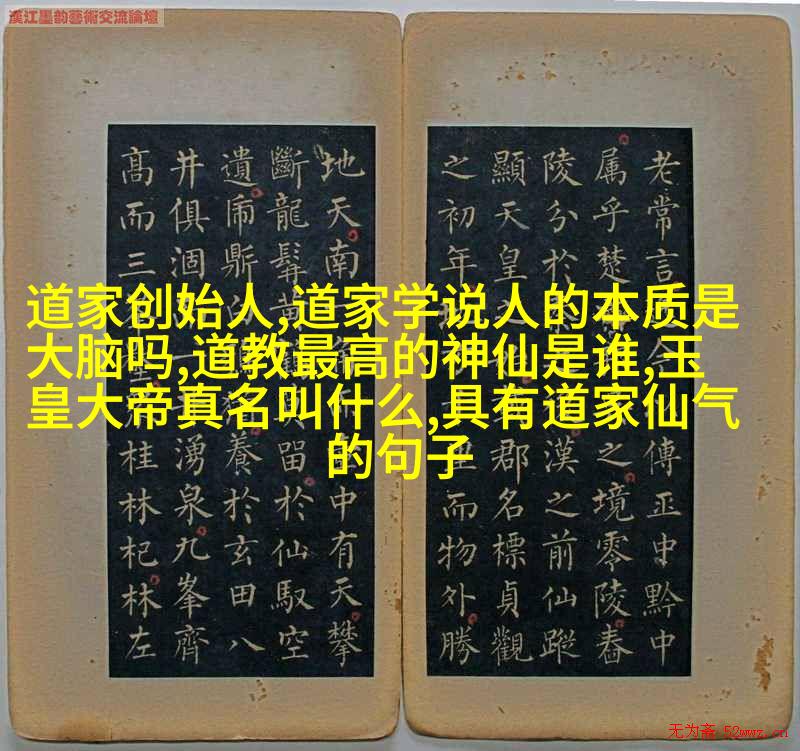 漢江墨韵藝術交流論壇
道家创始人,道家学说人的本质是
大脑吗,道教最高的神仙是谁,玉
皇大帝真名叫什么,具有道家仙气
的句子
老常言傳中黔中
属乎楚之境零陵舂
陵分於漢之前仙蹤
顯天皇之郡名標貞觀
之初年而物外勝
地天南中有天攀
斷龍髯黄留於仙馭空
遺鼎養於玄田八
井俱涸湧泉九峯齊
高而三桂林杞林左
无为斋 52wwz.cn